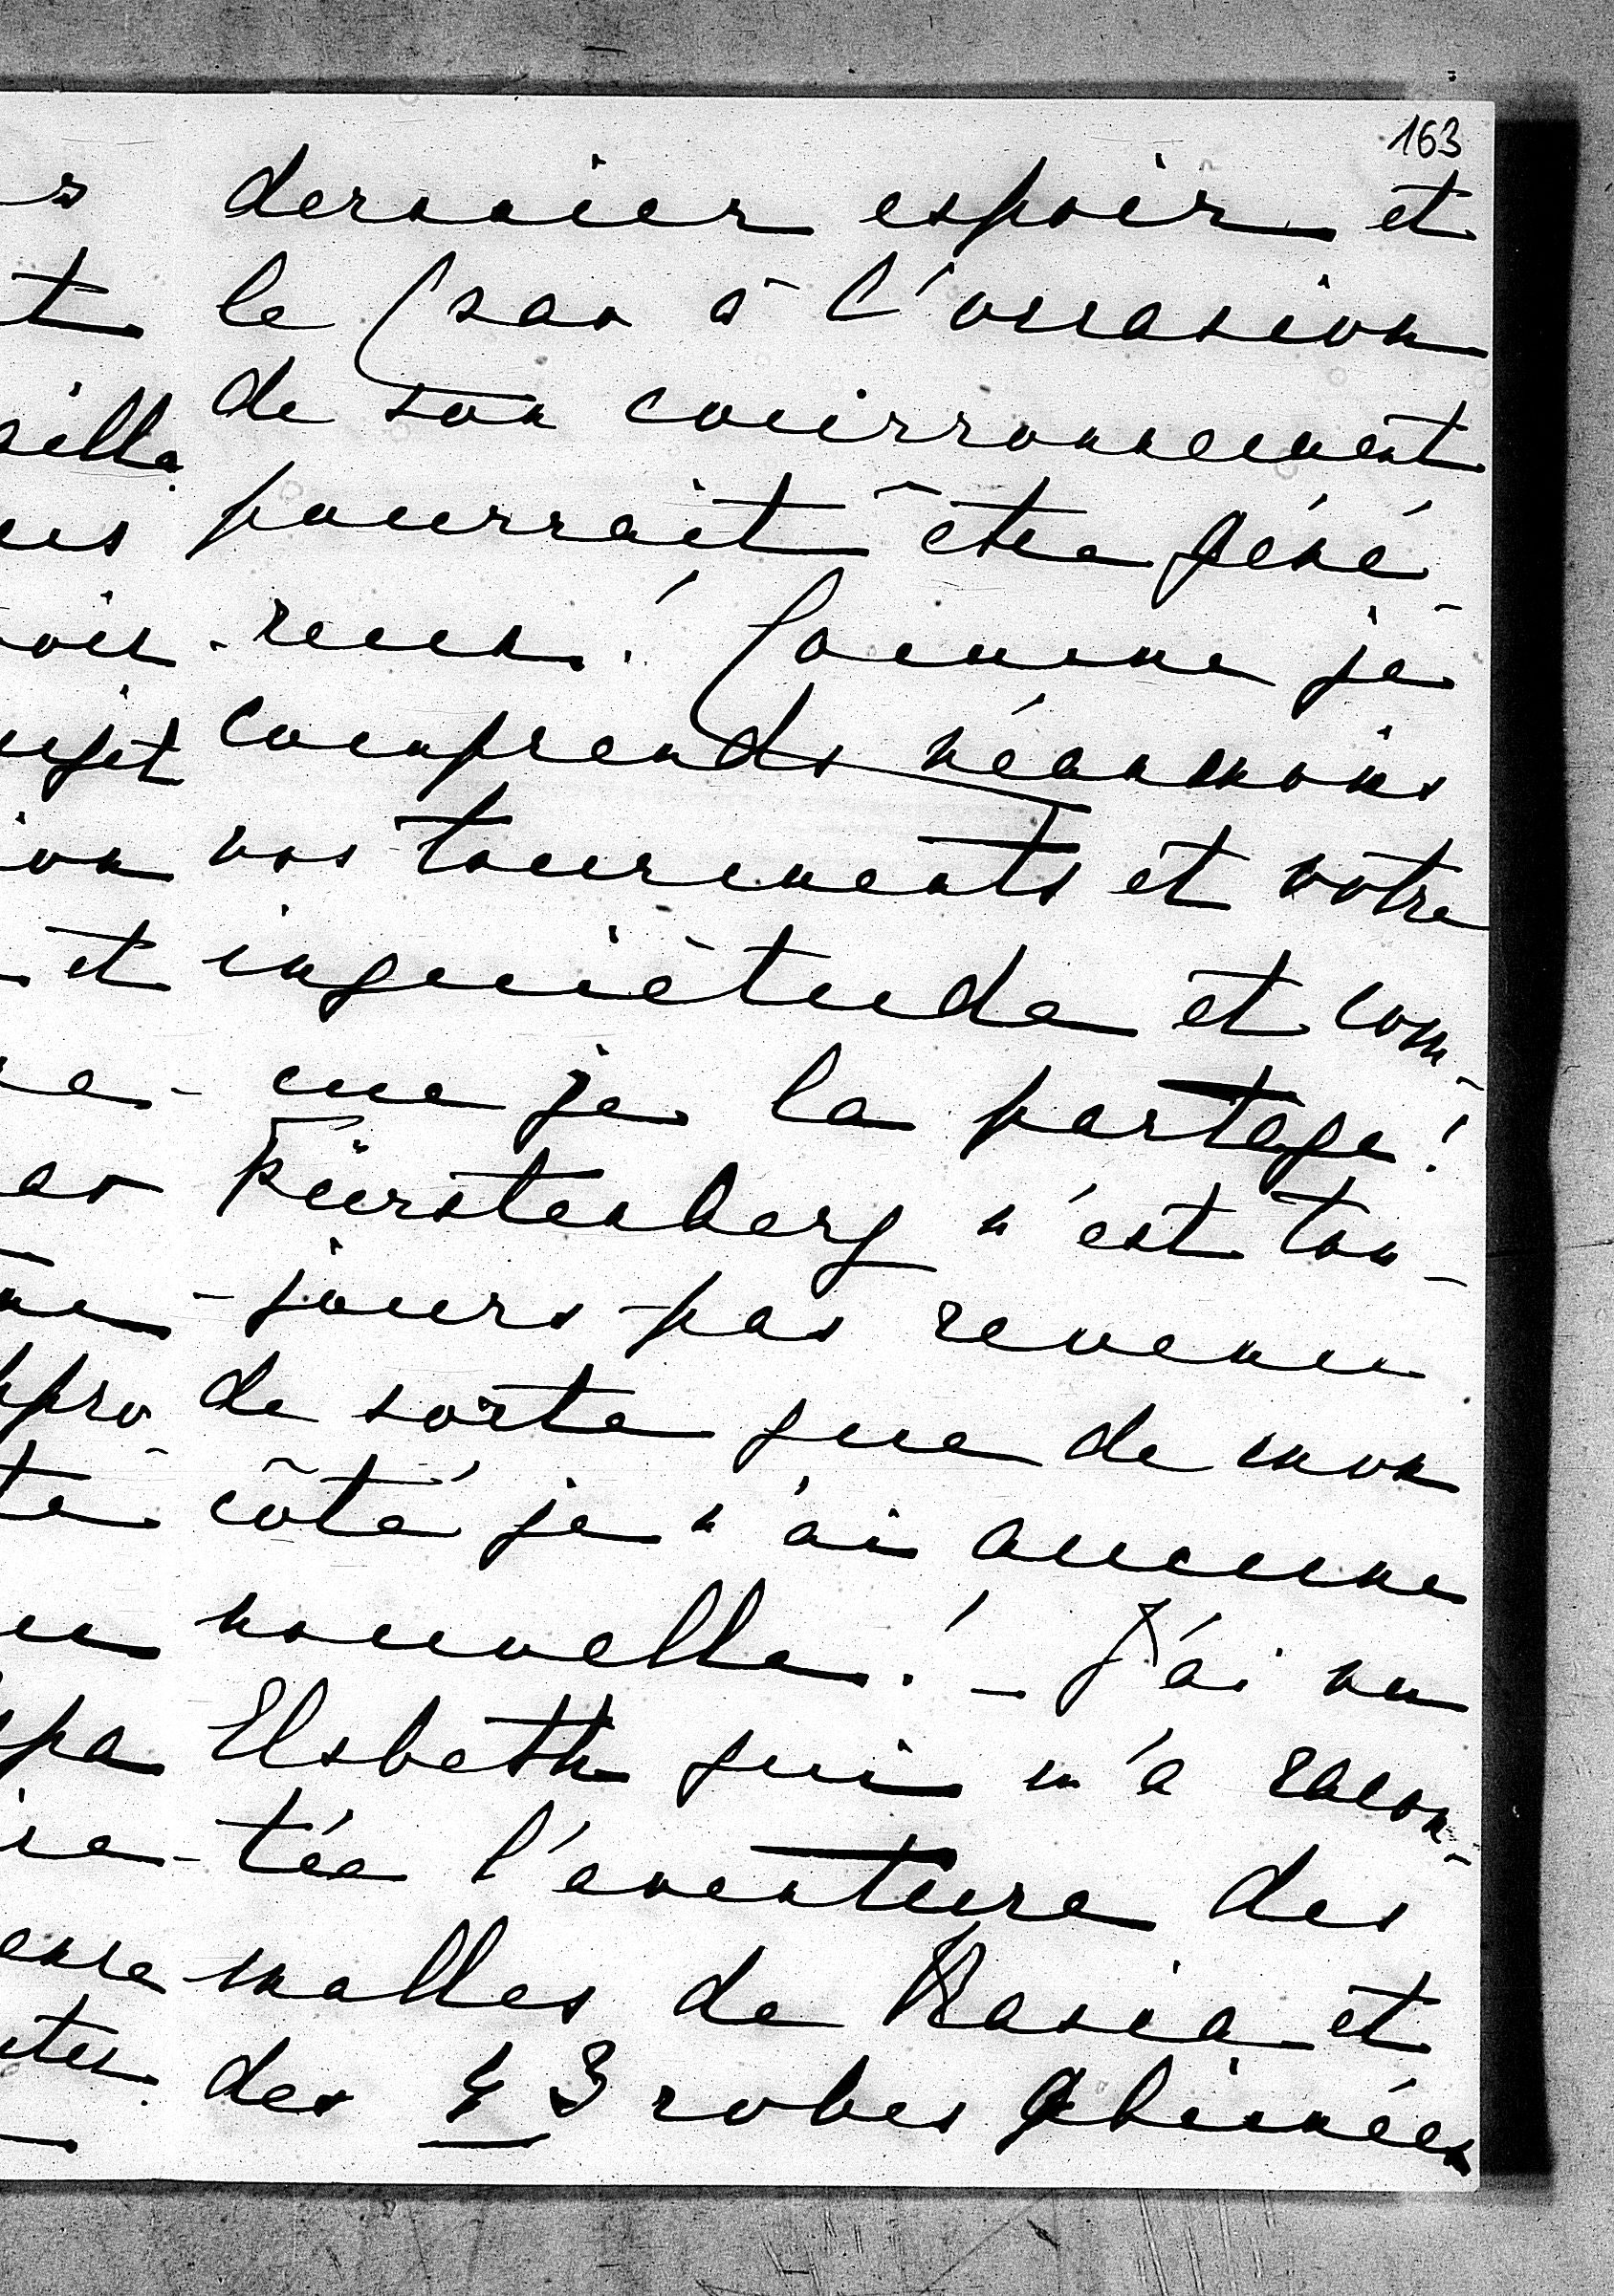 163
dernier espoir et
le Csar à l'occasion
de son couirronnement
pourrait être géné-
-reux.! Comme je
comprends néanmoins
vos tourments et votre
inquiètude et com-
me je la partage!
Fürstenberg n'est tou-
-jours pas revenu
de sorte que de mon
côté je n'ai aucune
nouvelle! – J'ai vu
Elsbeth qui m'a racon-
-tée l'aventure des
malles de Rasia et
des 3 robes abimées